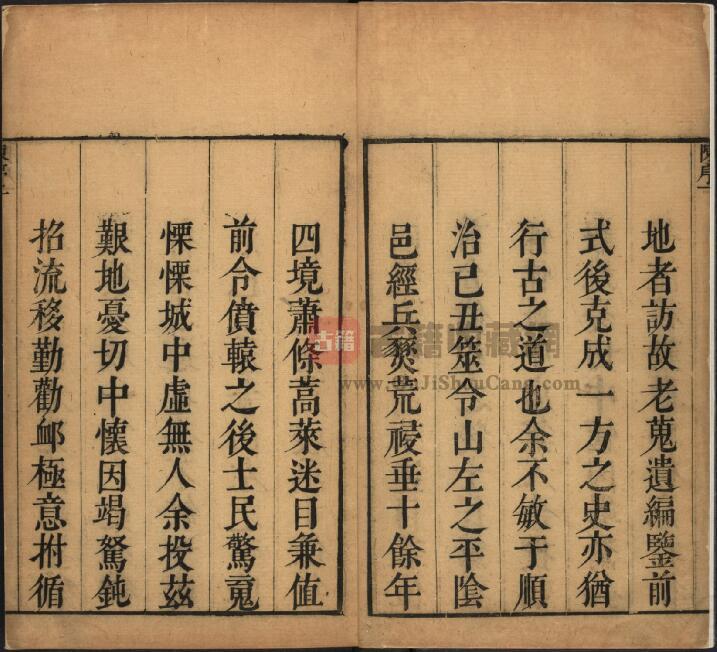 陳序
地者訪故老蒐遺編鑒前
式後克成一方之史亦猶
行古之道也余不敏于順
治己丑筮令山左之平陰
邑經兵燹荒祲垂十餘年
四境蕭條蒿萊迷目兼值
前令僨轅之後士民驚寬
慄慄城中虛無人余投茲
艱地憂切中懷因竭駑鈍
招流移勤勸䘏極意拊循
古籍
www.GuJiShouCang.com